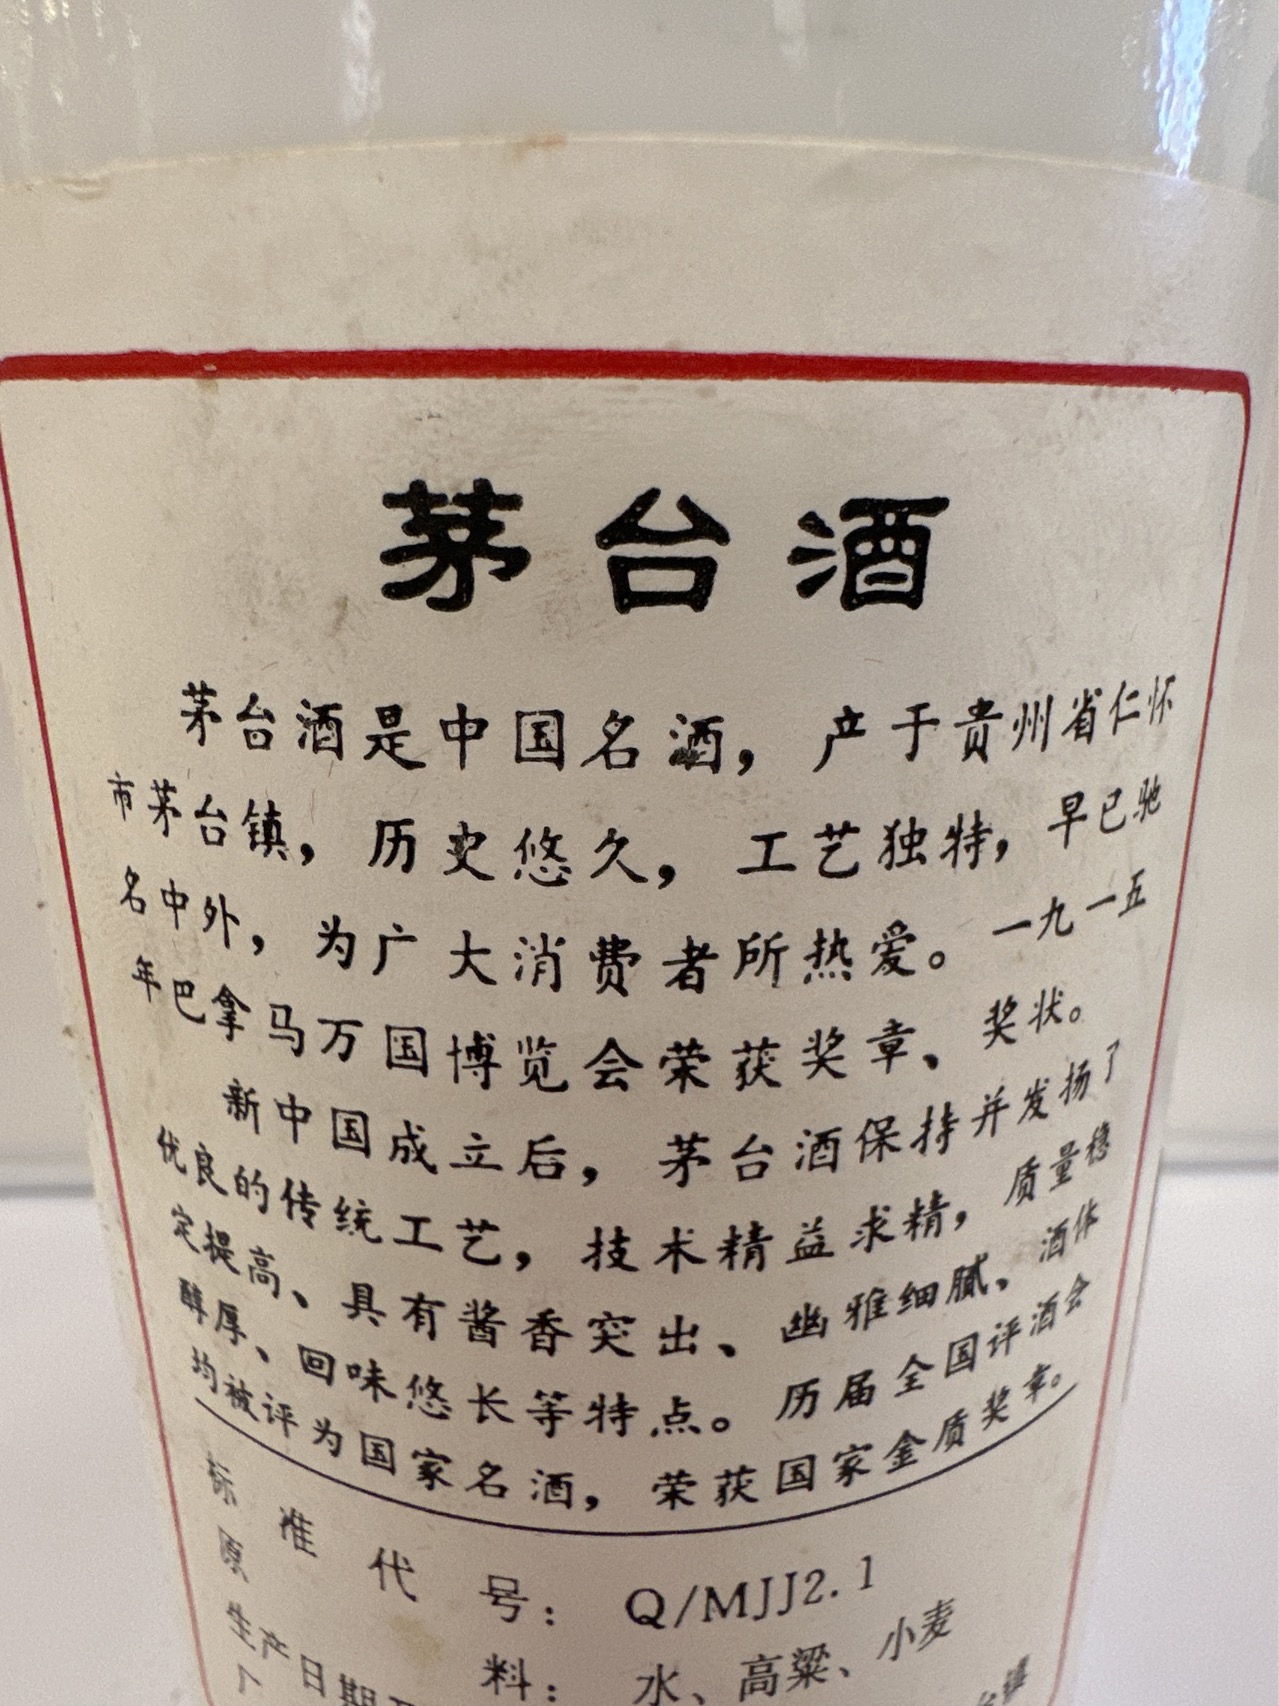 茅台酒
茅台酒是中国名酒，产于贵州省仁怀
市茅台镇，历史悠久，工艺独特，早已驰
名中外，为广大消费者所热爱。一九一五
年巴拿马万国博览会荣获奖章、奖状。
新中国成立后，茅台酒保持并发扬了
优良的传统工艺，技术精益求精，质量稳
定提高、具有酱香突出、幽雅细腻、酒体
醇厚、回味悠长等特点。历届全国评酒会
均被评为国家名酒，荣获国家金质奖章。
标准代号：Q/MJJ2.1
原料：水、高粱、小麦
生产日期